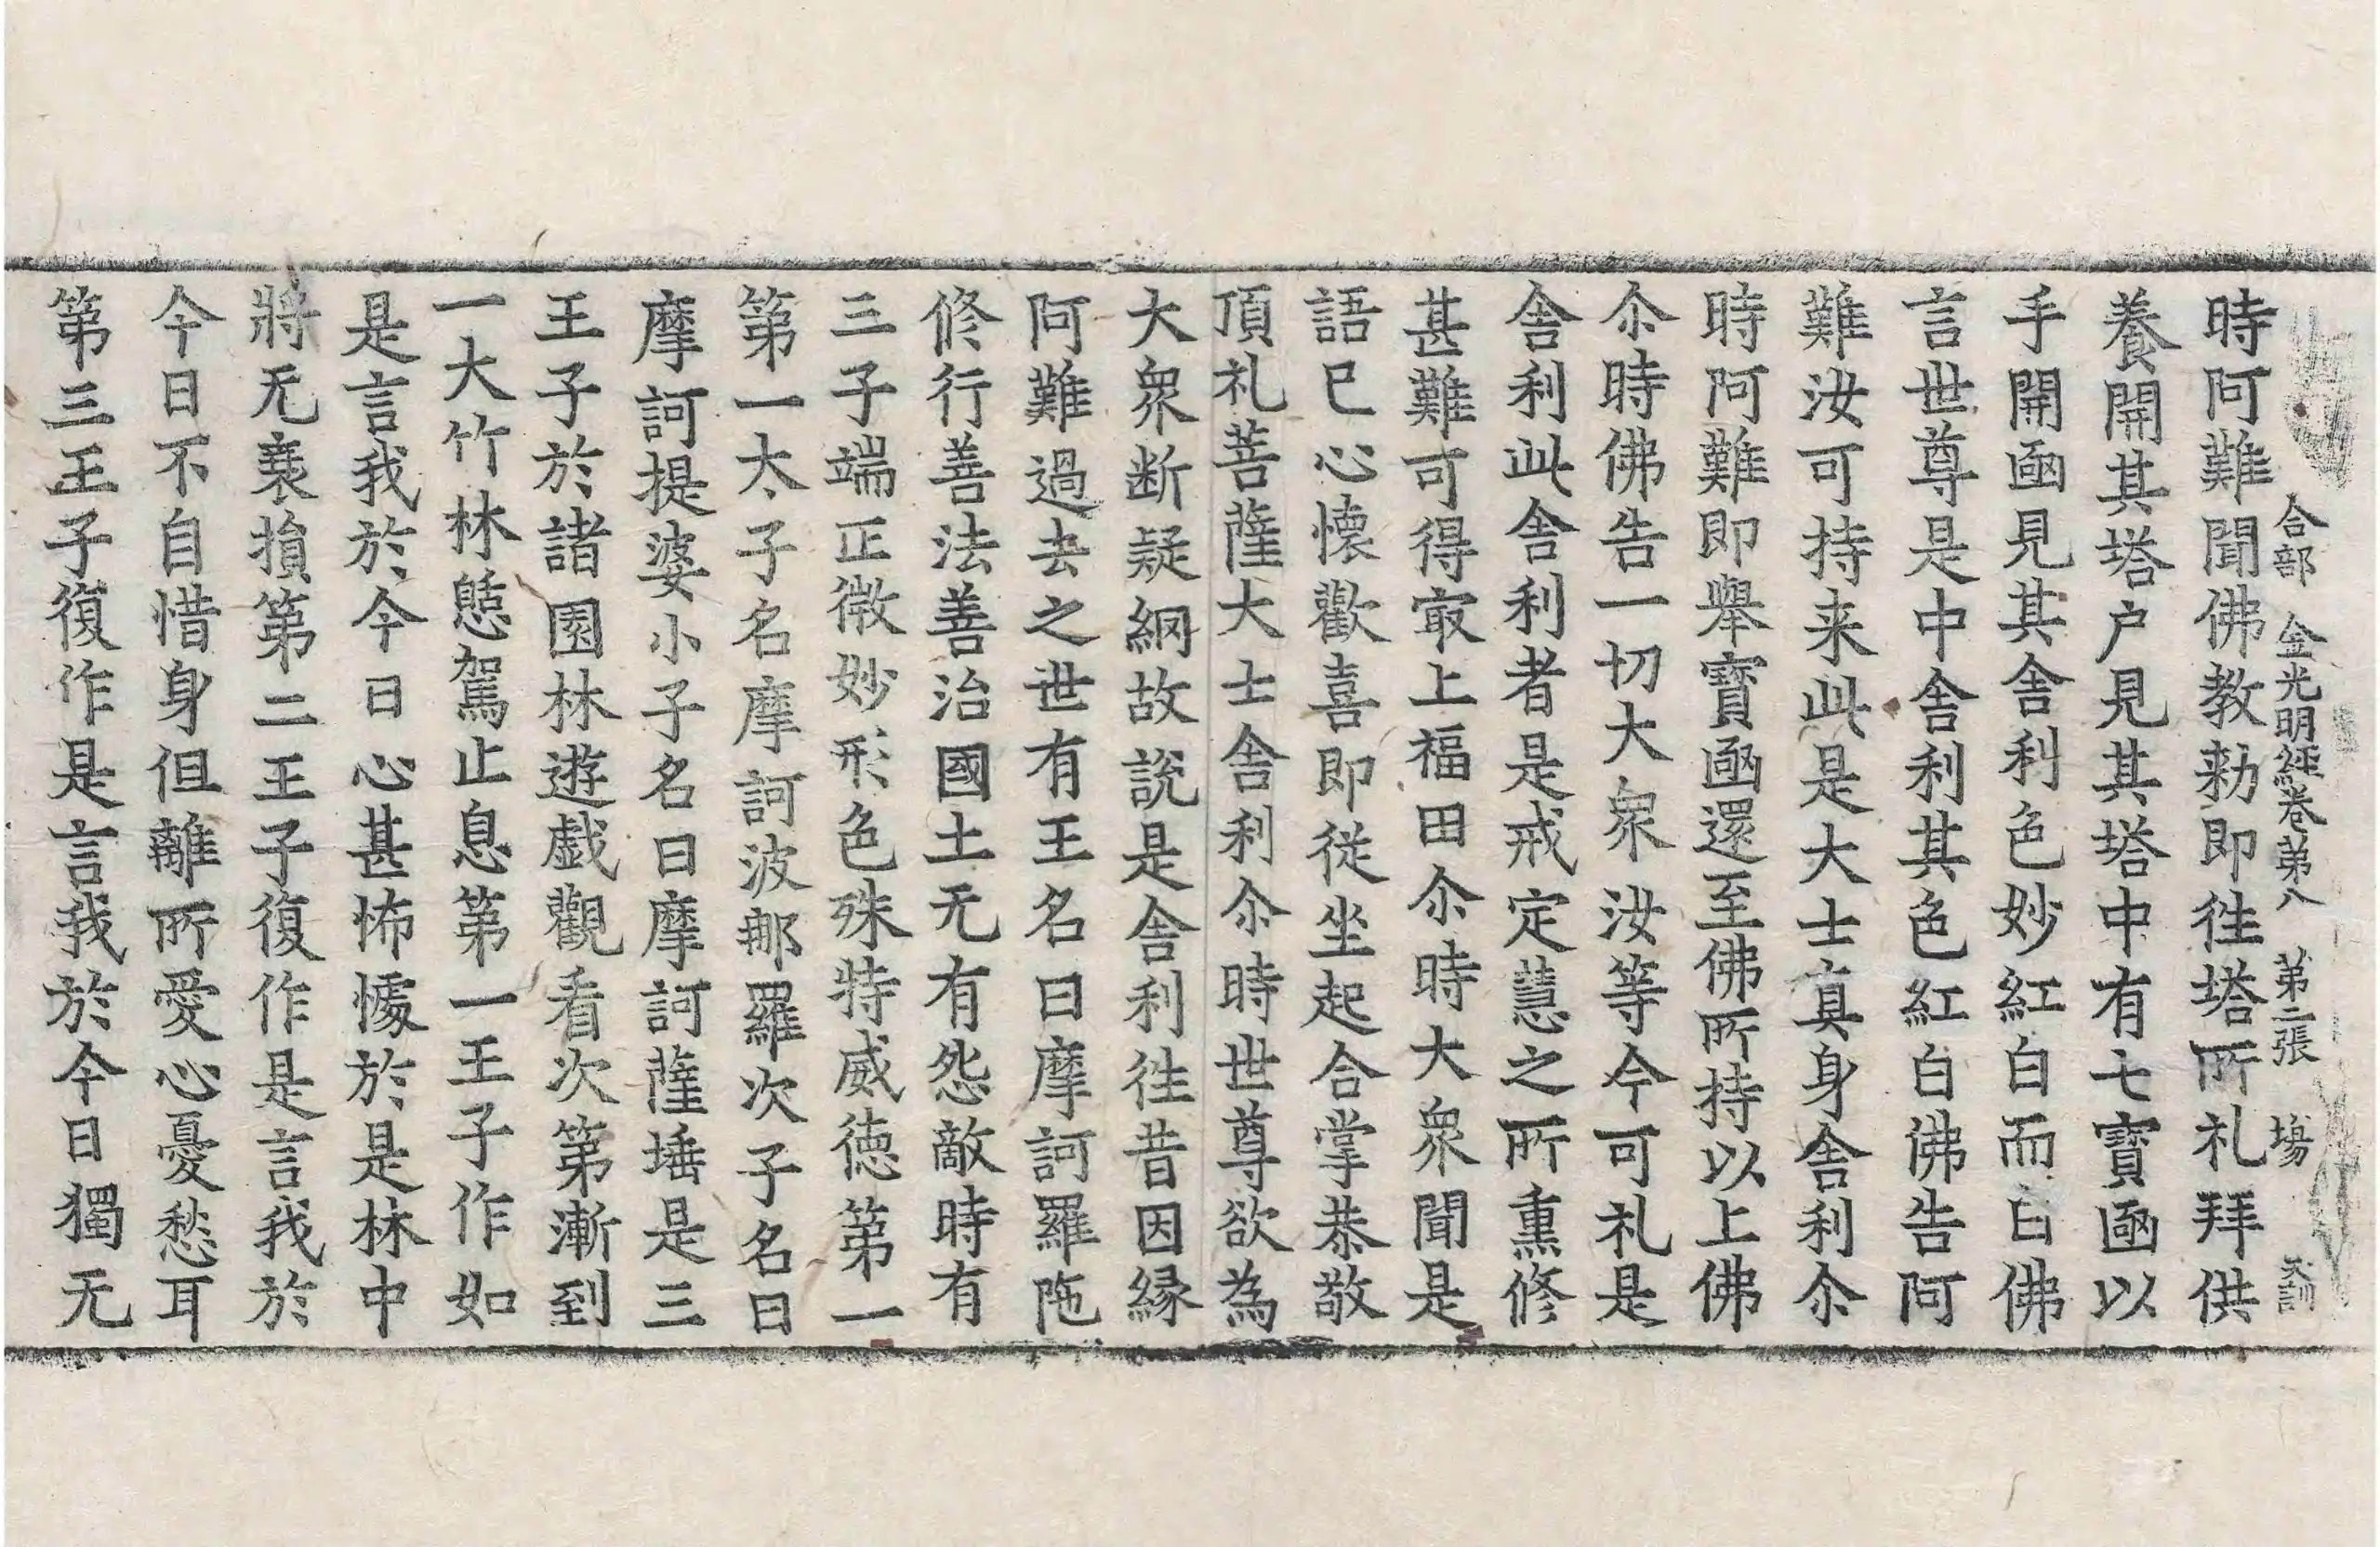 合部金光明經卷第八 第二張 塲 天訓
時阿難聞佛教勑即徃塔所礼拜供
養開其塔户見其塔中有七寶凾以
手開凾見其舎利色妙紅白而白佛
言世尊是中舎利其色紅白佛告阿
難汝可持来此是大士真身舎利尒
時阿難即舉寶凾還至佛所持以上佛
尒時佛告一切大衆汝等今可礼是
舎利此舎利者是戒定慧之所熏修
甚難可得㝡上福田尒時大衆聞是
語已心懷歡喜即從坐起合掌恭敬
頂礼菩薩大士舎利尒時世尊欲為
大衆断疑網故說是舎利徃昔因縁
阿難過去之世有王名曰摩訶羅陁
修行善法善治國土无有怨敵時有
三子端正微妙形色殊特威徳第一
第一太子名摩訶波那羅次子名曰
摩訶提婆小子名曰摩訶薩埵是三
王子於諸園林遊戯觀看次第漸到
一大竹林憩駕止息第一王子作如
是言我於今日心甚怖懅於是林中
將无衰損第二王子復作是言我於
今日不自惜身但離所愛心憂愁耳
第三王子復作是言我於今日獨无